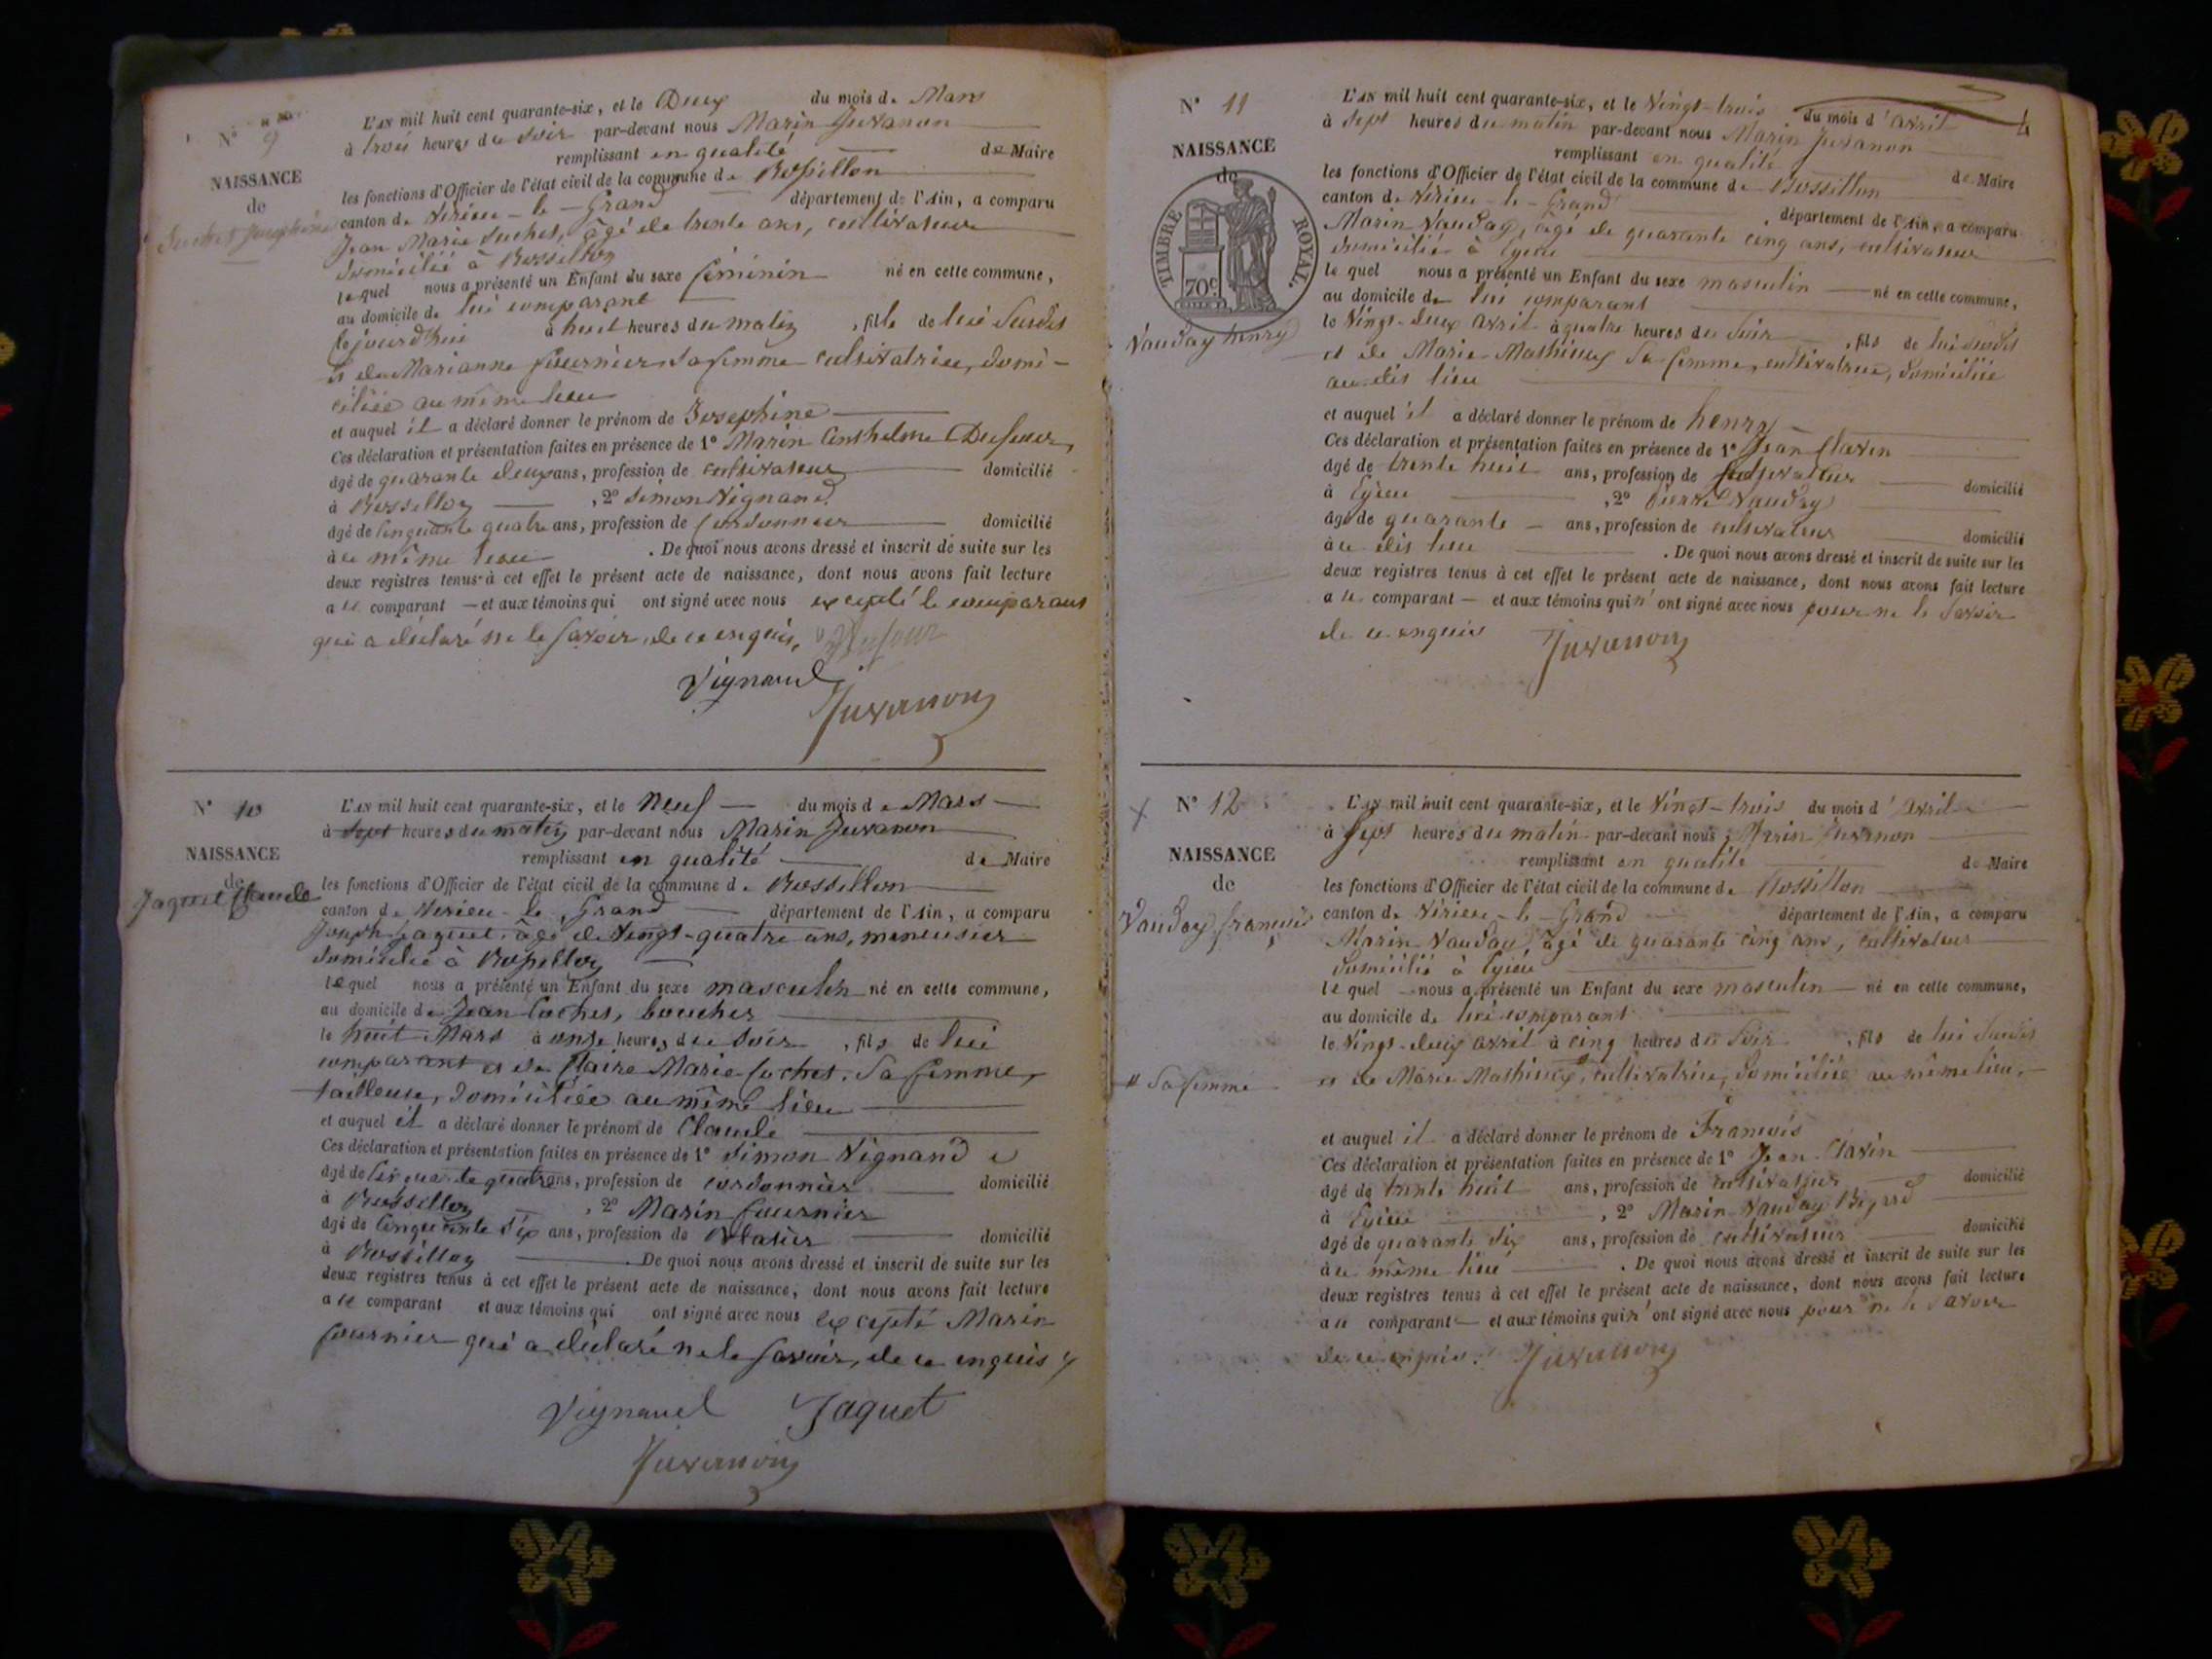 N° 9
NAISSANCE
de
Suchet Josephine
L'AN mil huit cent quarante-six, et le Deux du mois de Mars
à trois heures du soir par-devant nous Marin Juvanon
remplissant en qualité de Maire
les fonctions d'Officier de l'état civil de la commune de Rossillon
canton de Virieu-le-Grand département de l'Ain, a comparu
Jean Marie Suchet, âgé de trente ans, cultivateur
domicilié à Rossillon
lequel nous a présenté un Enfant du sexe féminin né en cette commune,
au domicile de lui comparant
cejourd'hui à huit heures du matin, fille de lui Susdit
et de Marianne fournier sa femme cultivatrice, domi-
ciliée au même lieu
et auquel il a déclaré donner le prénom de Josephine
Ces déclaration et présentation faites en présence de 1° Marin Anthelme Dufour,
âgé de quarante deux ans, profession de cultivateur domicilié
à Rossillon, 2° Simon Vignand
âgé de Cinquante quatre ans, profession de Cordonnier domicilié
à ce même lieu. De quoi nous avons dressé et inscrit de suite sur les
deux registres tenus à cet effet le présent acte de naissance, dont nous avons fait lecture
a ce comparant et aux témoins qui ont signé avec nous excepté le comparant
qui a déclaré ne le savoir, de ce enquis, Dufour
Vignand
Juvanon
N° 10
NAISSANCE
de
Jaquet Claude
L'AN mil huit cent quarante-six, et le Neuf du mois de Mars
à sept heures du matin par-devant nous Marin Juvanon
remplissant en qualité de Maire
les fonctions d'Officier de l'état civil de la commune de Rossillon
canton de Virieu-le-Grand département de l'Ain, a comparu
Joseph Jaquet, âgé de Vingt-quatre ans, menuisier
domicilié à Rossillon
lequel nous a présenté un Enfant du sexe masculin né en cette commune,
au domicile de Jean Cochet, boucher
le huit Mars à onze heures du soir, fils de lui
comparant et de Claire Marie Cochet, Sa femme,
tailleuse, domiciliée au même lieu
et auquel il a déclaré donner le prénom de Claude
Ces déclaration et présentation faites en présence de 1° Simon Vignand
âgé de Cinquante quatre ans, profession de cordonnier domicilié
à Rossillon, 2° Marin fournier
âgé de Cinquante six ans, profession de domicilié
à Rossillon De quoi nous avons dressé et inscrit de suite sur les
deux registres tenus à cet effet le présent acte de naissance, dont nous avons fait lecture
a ce comparant et aux témoins qui ont signé avec nous excepté Marin
fournier qui a déclaré ne le savoir, de ce enquis
Vignand Jaquet
Juvanon
4
N° 11
NAISSANCE
de
TIMBRE ROYAL
70c
Vauday henry
L'AN mil huit cent quarante-six, et le Vingt-trois du mois d'avril
à Sept heures du matin par-devant nous Marin Juvanon
remplissant en qualité de Maire
les fonctions d'Officier de l'état civil de la commune de Rossillon
canton de Virieu-le-Grand, département de l'Ain, a comparu
Marin Vauday, âgé de quarante cinq ans, cultivateur
domicilié à Egieu
lequel nous a présenté un Enfant du sexe masculin né en cette commune,
au domicile de lui comparant
le Vingt-deux avril à quatre heures du soir, fils de lui susdit
et de Marie Mathieux Sa femme, cultivatrice, domiciliée
au dit lieu
et auquel il a déclaré donner le prénom de henry
Ces déclaration et présentation faites en présence de 1° Jean Clavin
âgé de trente huit ans, profession de Cultivateur domicilié
à Egieu, 2° Pierre Vauday
âgé de quarante ans, profession de cultivateur domicilié
à ce dit lieu. De quoi nous avons dressé et inscrit de suite sur les
deux registres tenus à cet effet le présent acte de naissance, dont nous avons fait lecture
a ce comparant et aux témoins qui n'ont signé avec nous pour ne le Savoir
de ce enquis Juvanon
N° 12
NAISSANCE
de
Vauday francois
L'AN mil huit cent quarante-six, et le Vingt-trois du mois d'avril
à Sept heures du matin par-devant nous Marin Juvanon
remplissant en qualité de Maire
les fonctions d'Officier de l'état civil de la commune de Rossillon
canton de Virieu-le-Grand département de l'Ain, a comparu
Marin Vauday, âgé de quarante cinq ans, cultivateur
domicilié à Egieu
lequel nous a présenté un Enfant du sexe masculin né en cette commune,
au domicile de lui comparant
le Vingt-deux avril à cinq heures du Soir, fils de lui Susdit
# Sa femme
et de Marie Mathieux, # cultivatrice, domiciliée au même lieu,
et auquel il a déclaré donner le prénom de Francois
Ces déclaration et présentation faites en présence de 1° Jean Clavin
âgé de trente huit ans, profession de cultivateur domicilié
à Egieu, 2° Marin Vauday
âgé de quarante six ans, profession de cultivateur domicilié
à ce même lieu. De quoi nous avons dressé et inscrit de suite sur les
deux registres tenus à cet effet le présent acte de naissance, dont nous avons fait lecture
a ce comparant et aux témoins qui n'ont signé avec nous pour ne le Savoir
de ce enquis. Juvanon